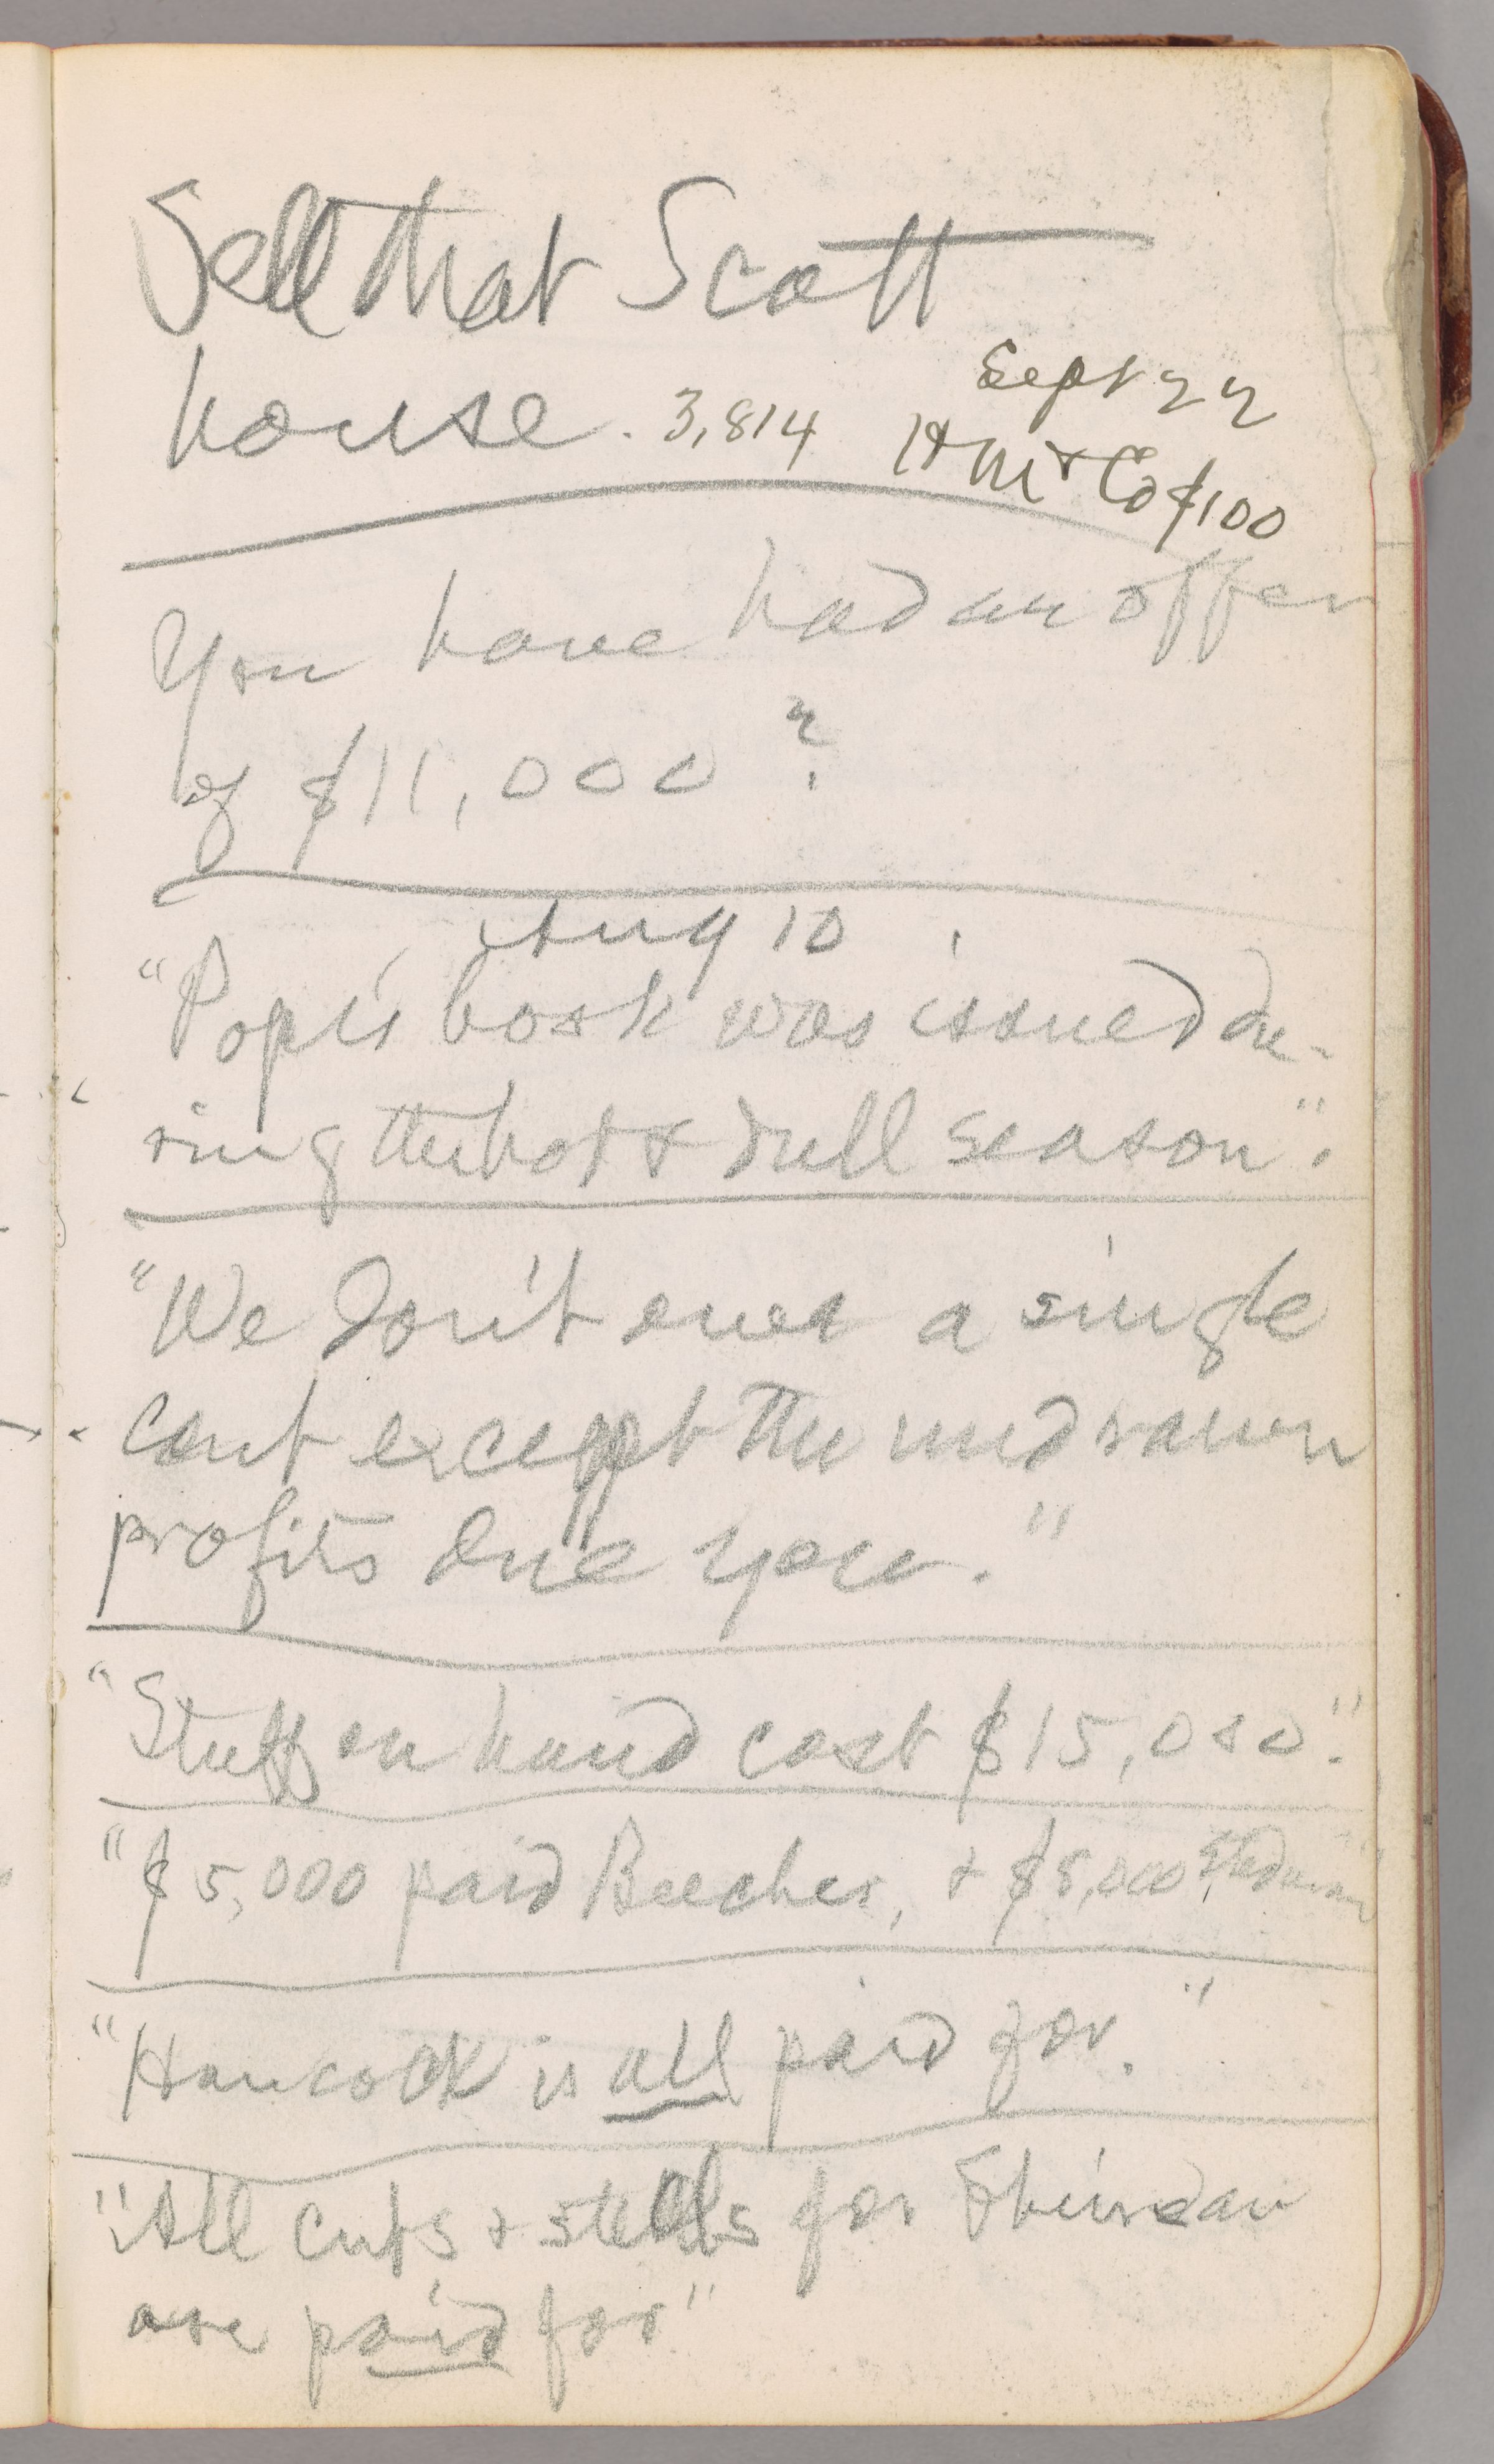 Sell that Scott
house. 3,814
Sept 22
H M & Co $100
You have had an offer
of $11,000?
Aug 10
"Pope's book was issued du-
ring the hot & dull season".
"We don't owe a single
cent except the undrawn
profits due you."
"Stuff on hand cost $15,000."
"$5,000 paid Beecher, & $5,000 Stedman"
"Hancock is all paid for."
"All cuts & steels for Sheridan
are paid for"